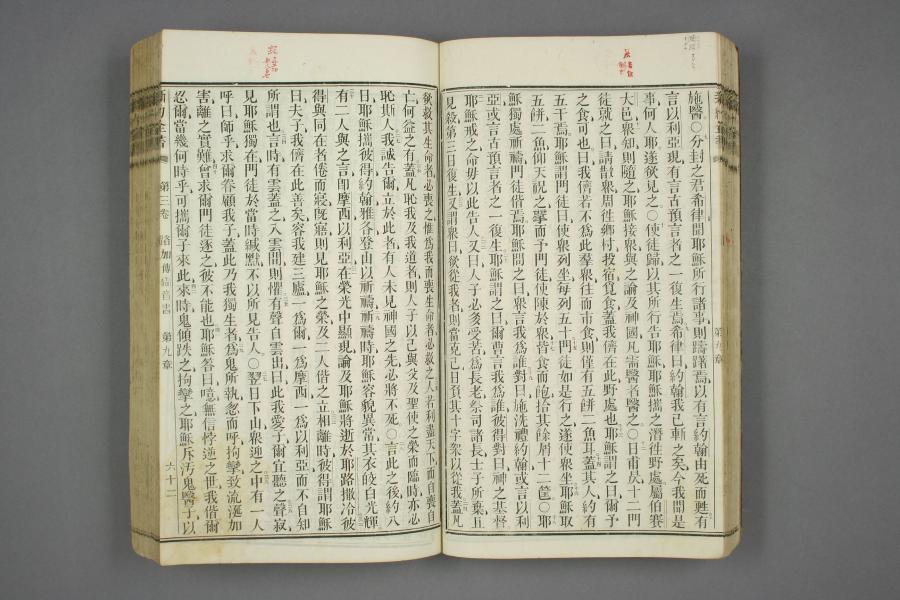 施醫○分封之君希律聞耶穌所行諸事則躊躇焉以有言約翰由死而甦有
言以利亞現有言古預言者之一復生焉希律曰約翰我已斬之矣今我聞是
事何人耶遂欲見之○使徒歸以其所行告耶穌耶穌攜之潛往野處屬伯賽
大邑衆知則隨之耶穌接衆與之論及神國凡需醫者醫之○日甫昃十二門
徒就之曰請散衆周往鄉村投宿覓食蓋我儕在此野處也耶穌謂之曰爾予
之食可也曰我儕若不爲此羣衆往而市食則僅有五餅二魚耳蓋其人約有
五千焉耶穌謂門徒曰使衆列坐每列五十門徒如是行之遂使衆坐耶穌取
五餅二魚仰天祝之擘而予門徒使陳於衆皆食而飽拾其餘屑十二筐○耶
穌獨處祈禱門徒偕焉耶穌問之曰衆言我爲誰對曰施洗禮約翰或言以利
亞或言古預言者之一復生耶穌謂之曰爾曹言我爲誰彼得對曰神之基督
耶穌戒之命毋以此告人又曰人子必多受苦爲長老祭司諸長士子所棄且
見殺第三日復生又謂衆曰欲從我者則當克己日負其十字架以從我蓋凡
欲救其生命者必喪之惟爲我而喪生命者必救之人若利盡天下而自喪自
亡何益之有蓋凡恥我及我道者則人子以己與父及聖使之榮而臨時亦必
恥斯人我誠告爾立於此者有人未見神國之先必將不死○言此之後約八
日耶穌攜彼得約翰雅各登山以祈禱祈禱時耶穌容貌異當其衣皎白光輝
有二人與之言即摩西以利亞在榮光中顯現論及耶穌將逝於耶路撒冷彼
得與同在者倦而寢旣寤則見耶穌之榮及二人偕之立相離時彼得謂耶穌
曰夫子我儕在此善矣容我建三廬一爲爾一爲摩西一爲以利亞而不自知
所謂也言時有雲蓋之入雲間則懼有聲自雲出曰此我愛子爾宜聽之聲寂
見耶穌獨在門徒於當時緘默不以所見告人○翌日下山衆迎之中有一人
呼曰師乎求爾眷顧我子蓋此乃我獨生者爲鬼所執忽而呼拘攣致流涎加
害離之實難曾求爾門徒逐之彼不能也耶穌答曰噫無信悖逆之世我偕爾
忍爾當幾何時乎可攜爾子來此來時鬼傾跌之拘攣之耶穌斥汚鬼醫子以
第三卷
路加傳福音書
第九章
六十二
第九章